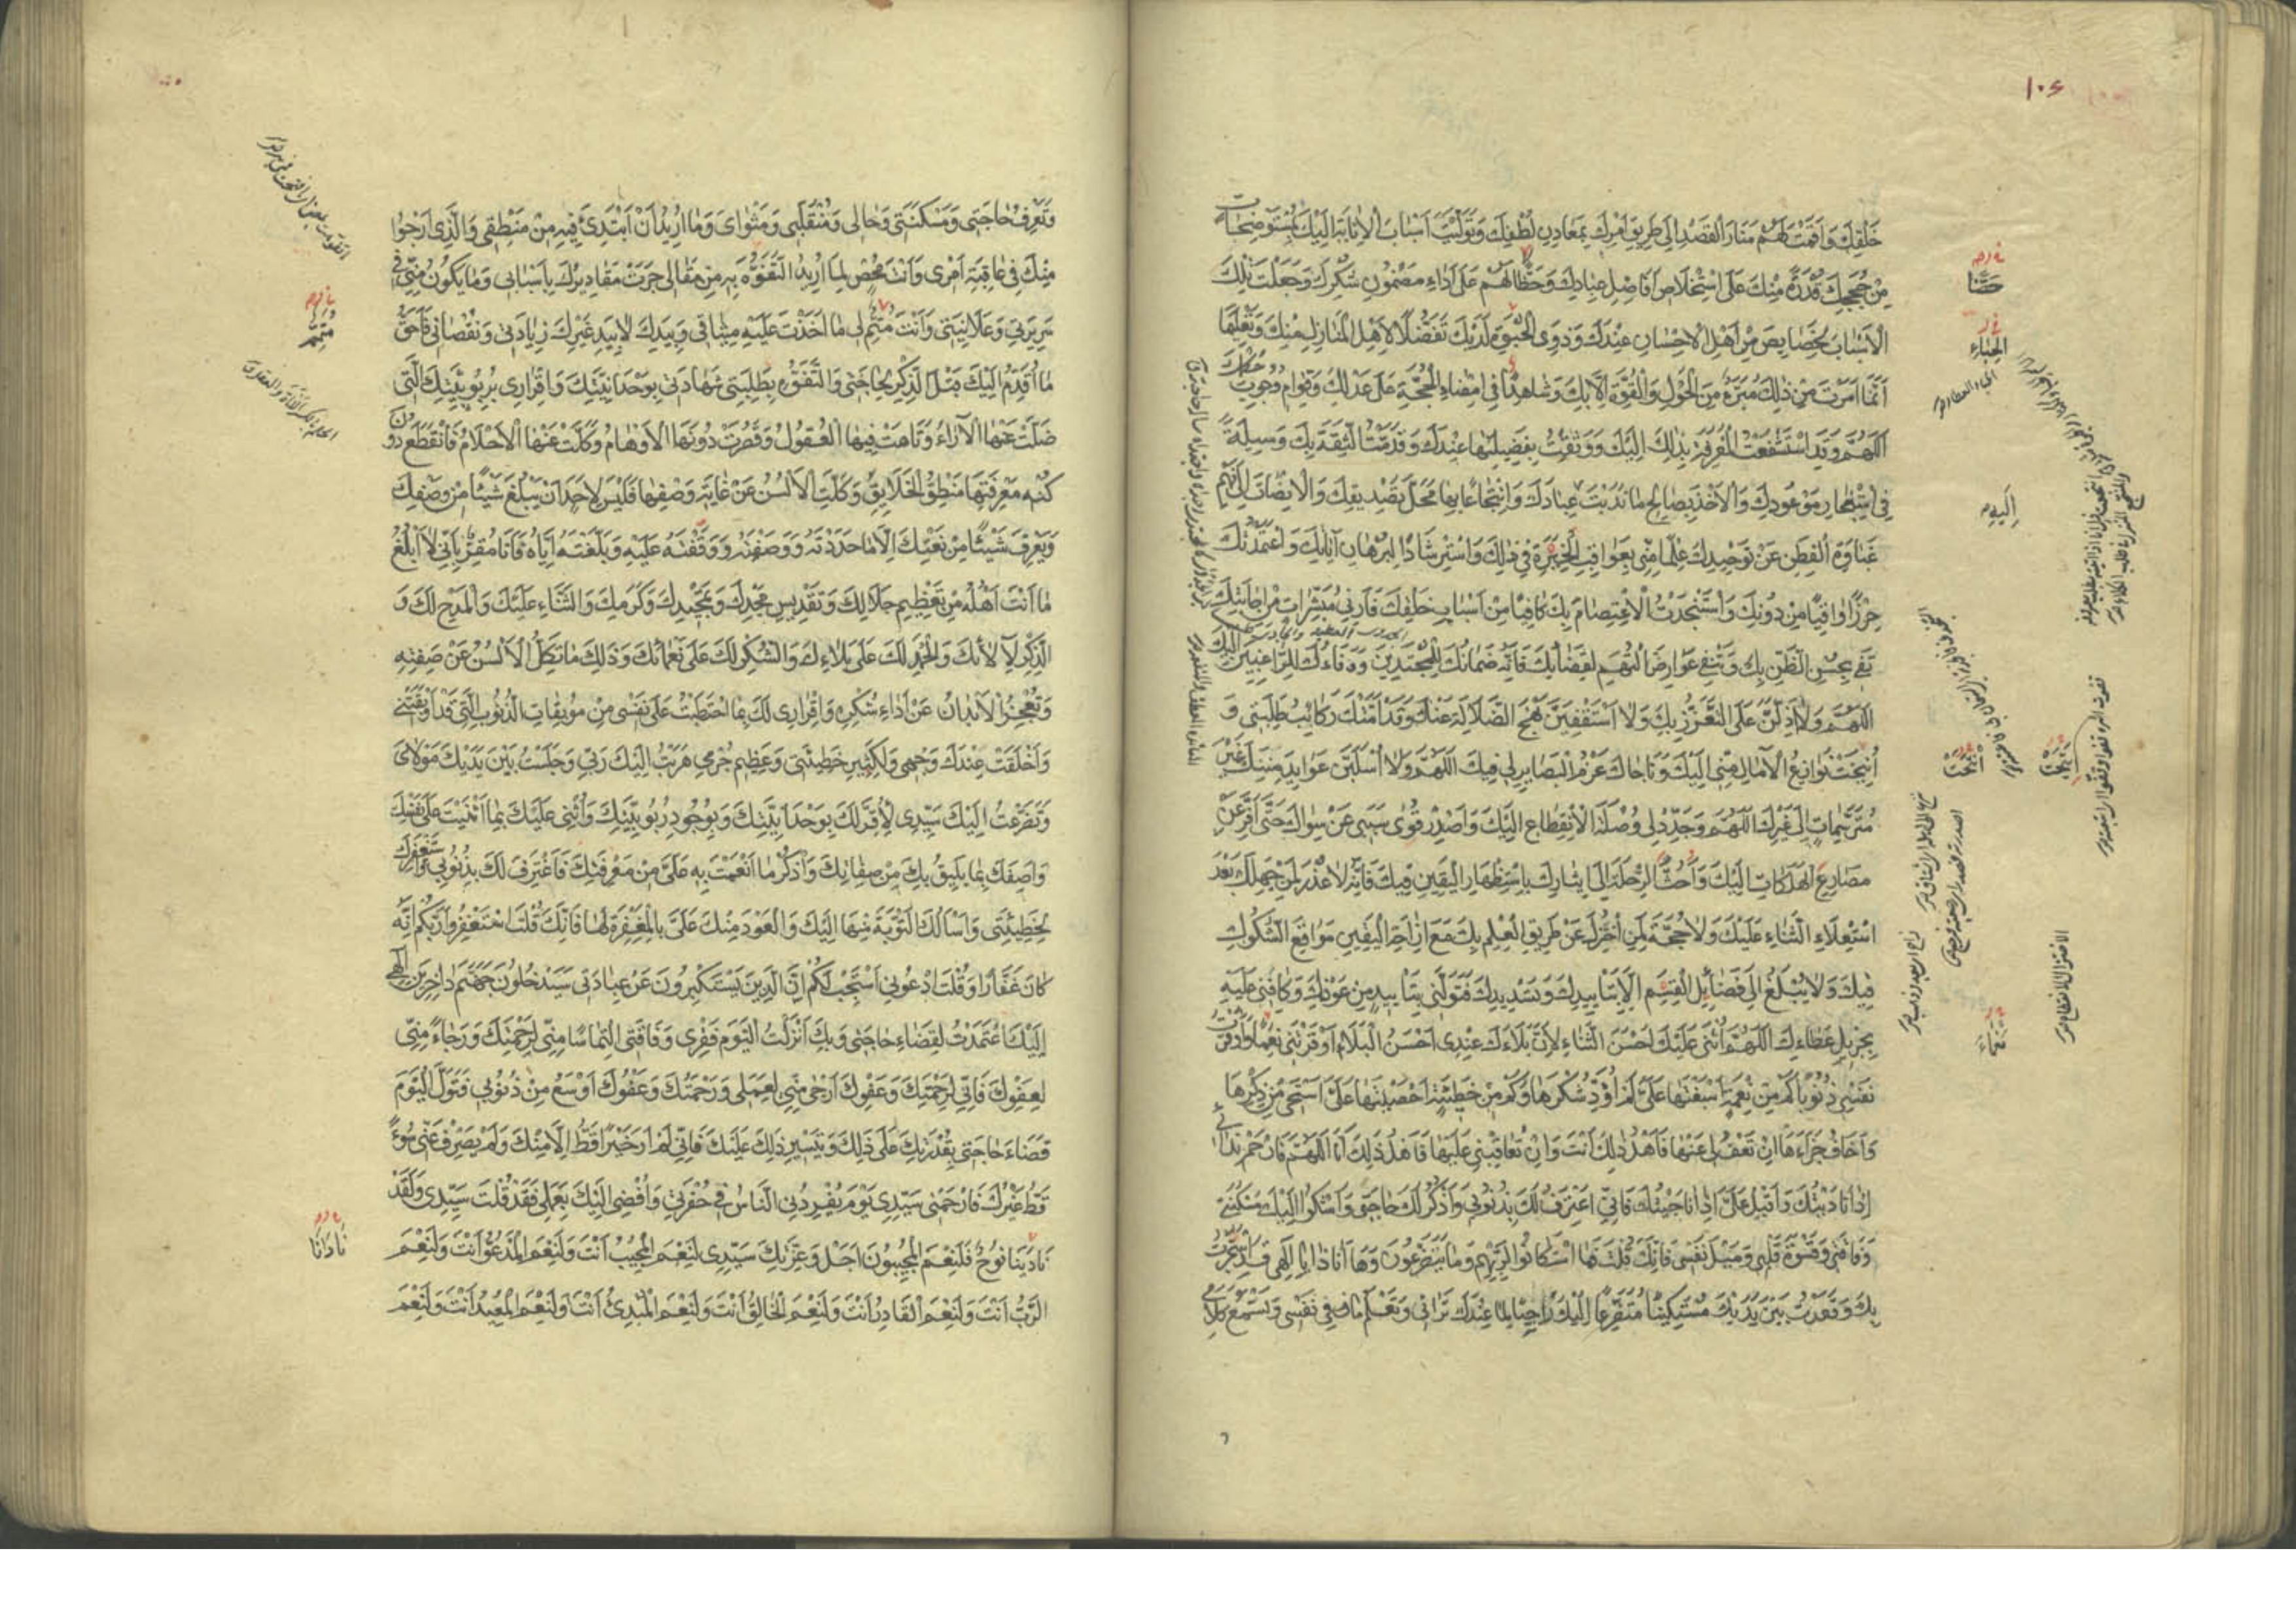 ١٠٤
خَلْقِكَ وَاَقَمْتَ لَهُمْ مَنَارَ الْقَصْدِ اِلٰى طَرِيقِ اَمْرِكَ بِمَعَادِنِ لُطْفِكَ وَتَوَلَّيْتَ اَسْبَابَ الْاِنَابَةِ اِلَيْكَ بِمُسْتَوْضِحَاتٍ
مِنْ حُجَجِكَ قُدْرَةً مِنْكَ عَلَى اسْتِخْلَاصِ اَفَاضِلِ عِبَادِكَ وَحَظًّا لَهُمْ عَلٰى اَدَاءِ مَضْمُونِ شُكْرِكَ وَجَعَلْتَ تِلْكَ
الْاَسْبَابَ بِخَصَايِصَ مِنْ اَهْلِ الْاِحْسَانِ عِنْدَكَ وَذَوِى الْحَبْوَةِ لَدَيْكَ تَفَضُّلًا لِاَهْلِ الْمَنَازِلِ مِنْكَ وَتَعْلِيمًا
اَنَّ مَا اَمَرْتَ مِنْ ذٰلِكَ مُبَرَّءٌ مِنَ الْحَوْلِ وَالْقُوَّةِ اِلَّا بِكَ وَشَاهِدًا فِى اِمْضَاءِ الْحُجَّةِ عَلٰى عَدْلِكَ وَقِوَامِ وُجُوبِ حُكْمِكَ
اَللّٰهُمَّ وَقَدِ اسْتَشْفَعْتُ الْمَعْرِفَةَ بِذٰلِكَ اِلَيْكَ وَوَثِقْتُ بِفَضِيلَتِهَا عِنْدَكَ وَقَدَّمْتُ الثِّقَةَ بِكَ وَسِيلَةً
فِى اسْتِنْجَازِ مَوْعُودِكَ وَالْاَخْذِ بِصَالِحِ مَا نَدَبْتَ عِبَادَكَ وَانْتِجَاعًا بِهَا مَحَلَّ تَصْدِيقِكَ وَالْاِنْصَاتَ اِلٰى فَهْمِ
غَبَاوَةِ الْفِطَنِ عَنْ تَوْحِيدِكَ عِلْمًا مِنِّى بِعَوَاقِبِ الْخِيَرَةِ فِى ذٰلِكَ وَاسْتِرْشَادًا لِبُرْهَانِ آيَاتِكَ وَاعْتَمَدْتُكَ
حِرْزًا وَاقِيًا مِنْ دُونِكَ وَاسْتَنْجَدْتُ الْاِعْتِصَامَ بِكَ كَافِيًا مِنْ اَسْبَابِ خَلْقِكَ فَاَرِنِى مُبَشِّرَاتٍ مِنْ اِجَابَتِكَ
تَفِى بِحُسْنِ الظَّنِّ بِكَ وَتَنْفِى عَوَارِضَ التُّهَمِ لِقَضَائِكَ فَاِنَّهُ ضَمَانُكَ لِلْمُجْتَدِينَ وَوَفَاءُكَ لِلرَّاغِبِينَ اِلَيْكَ
اَللّٰهُمَّ وَلَا اَذِلَّنَّ عَلَى التَّعَزُّزِ بِكَ وَلَا اَسْتَقْفِيَنَّ نَهْجَ الضَّلَالَةِ عَنْكَ وَقَدْ اَمَّتْكَ رَكَائِبُ طَلِبَتِى وَ
اُنِيخَتْ نَوَازِعُ الْآمَالِ مِنِّى اِلَيْكَ وَنَاجَاكَ عَزْمُ الْبَصَايِرِ لِى فِيكَ اَللّٰهُمَّ وَلَا اُسْلَبَنَّ عَوَايِدَ مِنَنِكَ غَيْرَ
مُتَوَسِّمَاتٍ اِلٰى غَيْرِكَ اَللّٰهُمَّ وَجَدِّدْ لِى وُصْلَةَ الْاِنْقِطَاعِ اِلَيْكَ وَاصْدُدْ قُوٰى سَبَبِى عَنْ سِوَاكَ حَتّٰى اَفِرَّ عَنْ
مَصَارِعِ الْهَلَكَاتِ اِلَيْكَ وَاَحُثَّ الرِّحْلَةَ اِلٰى اِيثَارِكَ بِاسْتِظْهَارِ الْيَقِينِ فِيكَ فَاِنَّهُ لَا عُذْرَ لِمَنْ جَهِلَكَ بَعْدَ
اسْتِعْلَاءِ الثَّنَاءِ عَلَيْكَ وَلَا حُجَّةَ لِمَنْ اخْتُزِلَ عَنْ طَرِيقِ الْعِلْمِ بِكَ مَعَ اِزَاحَةِ الْيَقِينِ مَوَاقِعَ الشُّكُوكِ
فِيكَ وَلَا يُبْلَغُ اِلٰى فَضَائِلِ الْقِسَمِ اِلَّا بِتَايِيدِكَ وَتَسْدِيدِكَ فَتَوَلَّنِى بِتَايِيدٍ مِنْ عَوْنِكَ وَكَافِنِى عَلَيْهِ
بِجَزِيلِ عَطَاءِكَ اَللّٰهُمَّ اُثْنِى عَلَيْكَ اَحْسَنَ الثَّنَاءِ لِاَنَّ بَلَاءَكَ عِنْدِى اَحْسَنُ الْبَلَاءِ اَوْقَرْتَنِى نِعَمًا وَاَوْقَرْتُ
نَفْسِى ذُنُوبًا كَمْ مِنْ نِعْمَةٍ اَسْبَغْتَهَا عَلَىَّ لَمْ اُؤَدِّ شُكْرَهَا وَكَمْ مِنْ خَطِيئَةٍ اَحْصَيْتَهَا عَلَىَّ اَسْتَحْيِى مِنْ ذِكْرِهَا
وَاَخَافُ جَزَاءَهَا اِنْ تَعْفُ لِى عَنْهَا فَاَهْلُ ذٰلِكَ اَنْتَ وَاِنْ تُعَاقِبْنِى عَلَيْهَا فَاَهْلُ ذٰلِكَ اَنَا اَللّٰهُمَّ فَارْحَمْ نِدَائِى
اِذَا نَادَيْتُكَ وَاَقْبِلْ عَلَىَّ اِذَا نَاجَيْتُكَ فَاِنِّى اَعْتَرِفُ لَكَ بِذُنُوبِى وَاَذْكُرُ لَكَ حَاجَتِى وَاَشْكُوا اِلَيْكَ مَسْكَنَتِى
وَفَاقَتِى وَقَسْوَةَ قَلْبِى وَمَيْلَ نَفْسِى فَاِنَّكَ قُلْتَ فَمَا اسْتَكَانُوا لِرَبِّهِمْ وَمَا يَتَضَرَّعُونَ وَهَا اَنَا ذَا يَا اِلٰهِى قَدِ اسْتَجَرْتُ
بِكَ وَقَعَدْتُ بَيْنَ يَدَيْكَ مُسْتَكِينًا مُتَضَرِّعًا اِلَيْكَ رَاجِيًا لِمَا عِنْدَكَ تَرَانِى وَتَعْلَمُ مَا فِى نَفْسِى وَتَسْمَعُ كَلَامِى
حَضًّا
الْحِبَاءِ
اِلَيْهِ
نَعْمَاءَ
وَتَعْرِفُ حَاجَتِى وَمَسْكَنَتِى وَحَالِى وَمُنْقَلَبِى وَمَثْوَاىَ وَمَا اُرِيدُ اَنْ اَبْتَدِئَ فِيهِ مِنْ مَنْطِقِى وَالَّذِى اَرْجُوا
مِنْكَ فِى عَاقِبَةِ اَمْرِى وَاَنْتَ مُحْصٍ لِمَا اُرِيدُ التَّفَوُّهَ بِهِ مِنْ مَقَالِى جَرَتْ مَقَادِيرُكَ بِاَسْبَابِى وَمَا يَكُونُ مِنِّى فِى
سَرِيرَتِى وَعَلَانِيَتِى وَاَنْتَ مُتِمٌّ لِى مَا اَخَذْتَ عَلَيْهِ مِيثَاقِى وَبِيَدِكَ لَا بِيَدِ غَيْرِكَ زِيَادَتِى وَنُقْصَانِى فَاَحَقُّ
مَا اُقَدِّمُ اِلَيْكَ قَبْلَ الذِّكْرِ لِحَاجَتِى وَالتَّفَوُّهِ بِطَلِبَتِى شَهَادَتِى بِوَحْدَانِيَّتِكَ وَاِقْرَارِى بِرُبُوبِيَّتِكَ الَّتِى
ضَلَّتْ عَنْهَا الْآرَاءُ وَتَاهَتْ فِيهَا الْعُقُولُ وَقَصُرَتْ دُونَهَا الْاَوْهَامُ وَكَلَّتْ عَنْهَا الْاَحْلَامُ فَانْقَطَعَ دُونَ
كُنْهِ مَعْرِفَتِهَا مَنْطِقُ الْخَلَايِقِ وَكَلَّتِ الْاَلْسُنُ عَنْ غَايَةِ وَصْفِهَا فَلَيْسَ لِاَحَدٍ اَنْ يَبْلُغَ شَيْئًا مِنْ وَصْفِكَ
وَيَعْرِفَ شَيْئًا مِنْ نَعْتِكَ اِلَّا مَا حَدَدْتَهُ وَوَصَفْتَهُ وَوَقَفْتَهُ عَلَيْهِ وَبَلَّغْتَهُ اِيَّاهُ فَاَنَا مُقِرٌّ بِاَنِّى لَا اَبْلُغُ
مَا اَنْتَ اَهْلُهُ مِنْ تَعْظِيمِ جَلَالِكَ وَتَقْدِيسِ مَجْدِكَ وَتَمْجِيدِكَ وَكَرَمِكَ وَالثَّنَاءِ عَلَيْكَ وَالْمَدْحِ لَكَ وَ
الذِّكْرِ لِآلَائِكَ وَالْحَمْدِ لَكَ عَلٰى بَلَاءِكَ وَالشُّكْرِ لَكَ عَلٰى نَعْمَائِكَ وَذٰلِكَ مَا تَكِلُّ الْاَلْسُنُ عَنْ صِفَتِهِ
وَتَعْجِزُ الْاَبْدَانُ عَنْ اَدَاءِ شُكْرِهِ وَاِقْرَارِى لَكَ بِمَا احْتَطَبْتُ عَلٰى نَفْسِى مِنْ مُوبِقَاتِ الذُّنُوبِ الَّتِى قَدْ اَوْبَقَتْنِى
وَاَخْلَقَتْ عِنْدَكَ وَجْهِى وَلِكَثِيرِ خَطِيئَتِى وَعَظِيمِ جُرْمِى هَرَبْتُ اِلَيْكَ رَبِّى وَجَلَسْتُ بَيْنَ يَدَيْكَ مَوْلَاىَ
وَتَضَرَّعْتُ اِلَيْكَ سَيِّدِى لِاُقِرَّ لَكَ بِوَحْدَانِيَّتِكَ وَبِوُجُودِ رُبُوبِيَّتِكَ وَاُثْنِى عَلَيْكَ بِمَا اَثْنَيْتَ عَلٰى نَفْسِكَ
وَاَصِفَكَ بِمَا يَلِيقُ بِكَ مِنْ صِفَاتِكَ وَاَذْكُرَ مَا اَنْعَمْتَ بِهِ عَلَىَّ مِنْ مَعْرِفَتِكَ فَاَعْتَرِفَ لَكَ بِذُنُوبِى وَاَسْتَغْفِرَكَ
لِخَطِيئَتِى وَاَسْاَلَكَ التَّوْبَةَ مِنْهَا اِلَيْكَ وَالْعَوْدَ مِنْكَ عَلَىَّ بِالْمَغْفِرَةِ لَهَا فَاِنَّكَ قُلْتَ اسْتَغْفِرُوا رَبَّكُمْ اِنَّهُ
كَانَ غَفَّارًا وَقُلْتَ ادْعُونِى اَسْتَجِبْ لَكُمْ اِنَّ الَّذِينَ يَسْتَكْبِرُونَ عَنْ عِبَادَتِى سَيَدْخُلُونَ جَهَنَّمَ دَاخِرِينَ اِلٰهِى
اِلَيْكَ اعْتَمَدْتُ لِقَضَاءِ حَاجَتِى وَبِكَ اَنْزَلْتُ الْيَوْمَ فَقْرِى وَفَاقَتِى الْتِمَاسًا مِنِّى لِرَحْمَتِكَ وَرَجَاءً مِنِّى
لِعَفْوِكَ فَاِنِّى لِرَحْمَتِكَ وَعَفْوِكَ اَرْجٰى مِنِّى لِعَمَلِى وَرَحْمَتُكَ وَعَفْوُكَ اَوْسَعُ مِنْ ذُنُوبِى فَتَوَلَّ الْيَوْمَ
قَضَاءَ حَاجَتِى بِقُدْرَتِكَ عَلٰى ذٰلِكَ وَتَيْسِيرِ ذٰلِكَ عَلَيْكَ فَاِنِّى لَمْ اَرَ خَيْرًا قَطُّ اِلَّا مِنْكَ وَلَمْ يَصْرِفْ عَنِّى سُوءً
قَطُّ غَيْرُكَ فَارْحَمْنِى سَيِّدِى يَوْمَ يُفْرِدُنِى النَّاسُ فِى حُفْرَتِى وَاُفْضِى اِلَيْكَ بِعَمَلِى فَقَدْ قُلْتَ سَيِّدِى وَلَقَدْ
نَادَيْنَا نُوحٌ فَلَنِعْمَ الْمُجِيبُونَ اَجَلْ وَعِزَّتِكَ سَيِّدِى لَنِعْمَ الْمُجِيبُ اَنْتَ وَلَنِعْمَ الْمَدْعُوُّ اَنْتَ وَلَنِعْمَ
الرَّبُّ اَنْتَ وَلَنِعْمَ الْقَادِرُ اَنْتَ وَلَنِعْمَ الْخَالِقُ اَنْتَ وَلَنِعْمَ الْمُبْدِئُ اَنْتَ وَلَنِعْمَ الْمُعِيدُ اَنْتَ وَلَنِعْمَ
مُتَمِّمٌ
نَادَانَا